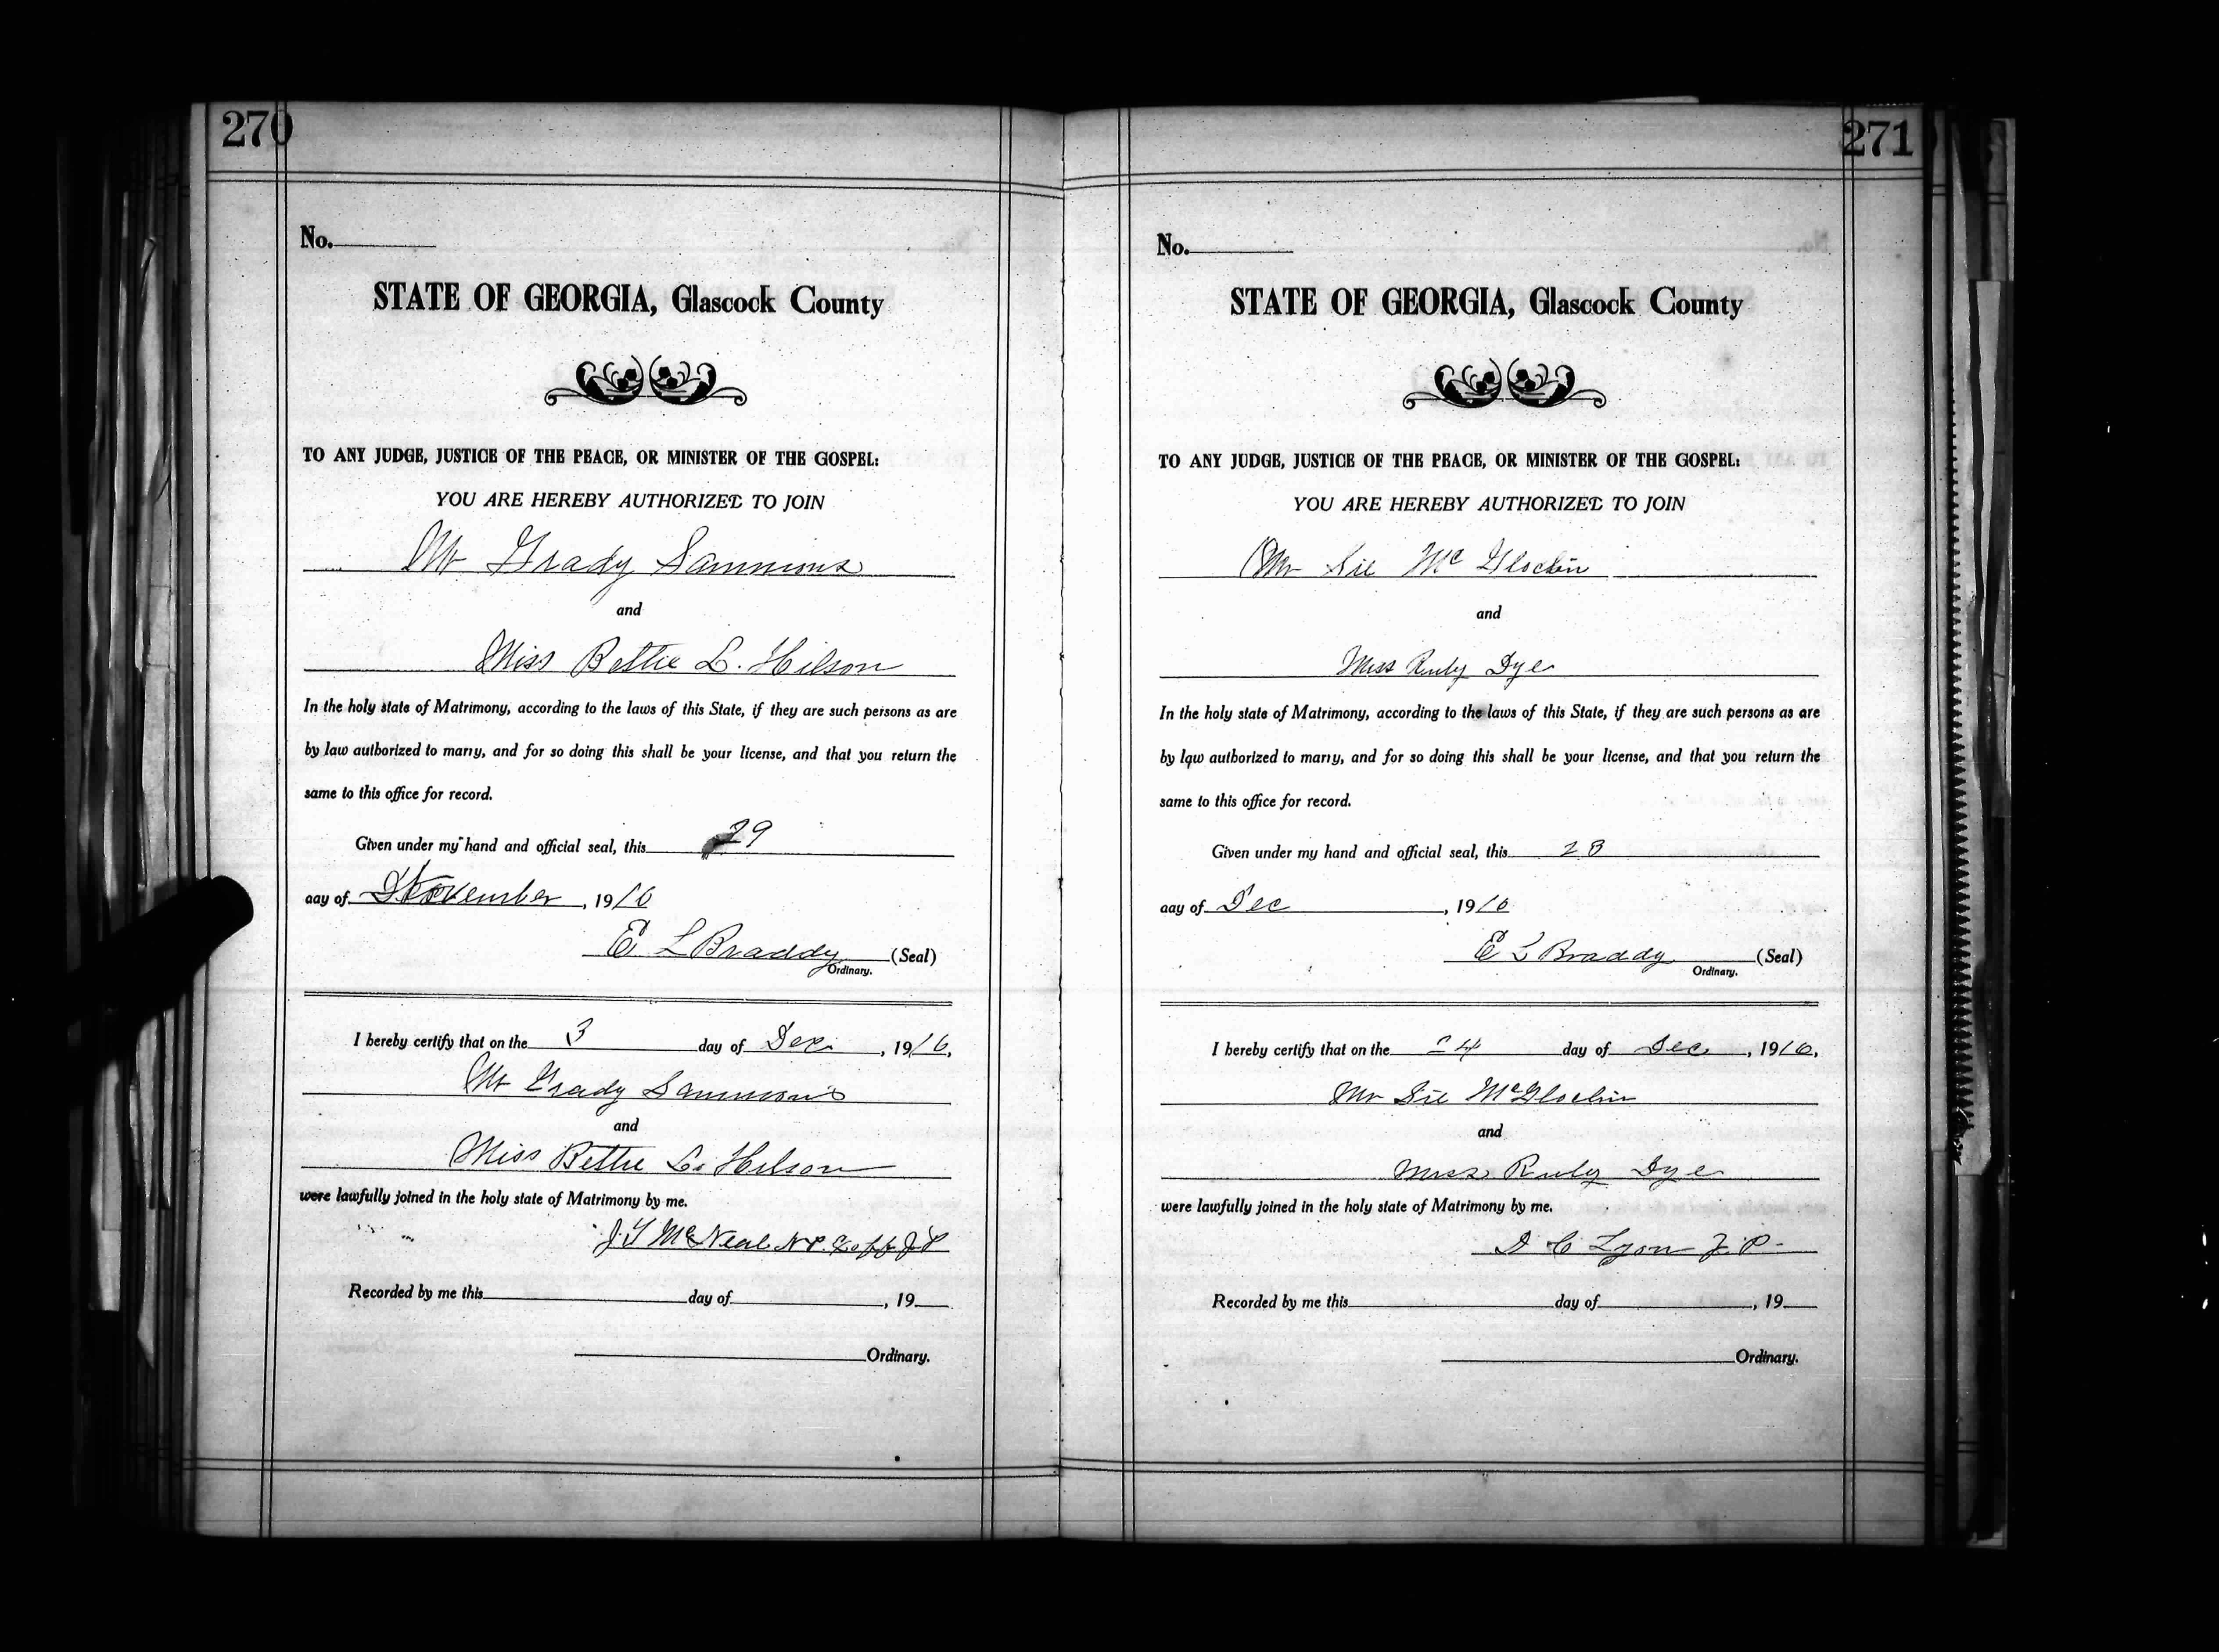 270
No.
STATE OF GEORGIA, Glascock County
TO ANY JUDGE, JUSTICE OF THE PEACE, OR MINISTER OF THE GOSPEL:
YOU ARE HEREBY AUTHORIZED TO JOIN
Mr Grady Sammons
and
Miss Bettie L. Hilson
In the holy state of Matrimony, according to the laws of this State, if they are such persons as are
by law authorized to marry, and for so doing this shall be your license, and that you return the
same to this office for record.
Given under my hand and official seal, this 29
day of November, 1916
E L Braddy (Seal)
Ordinary.
I hereby certify that on the 3 day of Dec, 1916,
Mr Grady Sammons
and
Miss Bettie L. Hilson
were lawfully joined in the holy state of Matrimony by me.
J. T McNeal N.P. & off J P
Recorded by me this day of , 19
Ordinary.
271
No.
STATE OF GEORGIA, Glascock County
TO ANY JUDGE, JUSTICE OF THE PEACE, OR MINISTER OF THE GOSPEL:
YOU ARE HEREBY AUTHORIZED TO JOIN
Mr Sie McGlockin
and
Miss Ruby Dye
In the holy state of Matrimony, according to the laws of this State, if they are such persons as are
by law authorized to marry, and for so doing this shall be your license, and that you return the
same to this office for record.
Given under my hand and official seal, this 23
day of Dec, 1916
E L Braddy (Seal)
Ordinary.
I hereby certify that on the 24 day of Dec, 1916,
Mr Sie McGlockin
and
Miss Ruby Dye
were lawfully joined in the holy state of Matrimony by me.
C Lyon J. P.
Recorded by me this day of , 19
Ordinary.